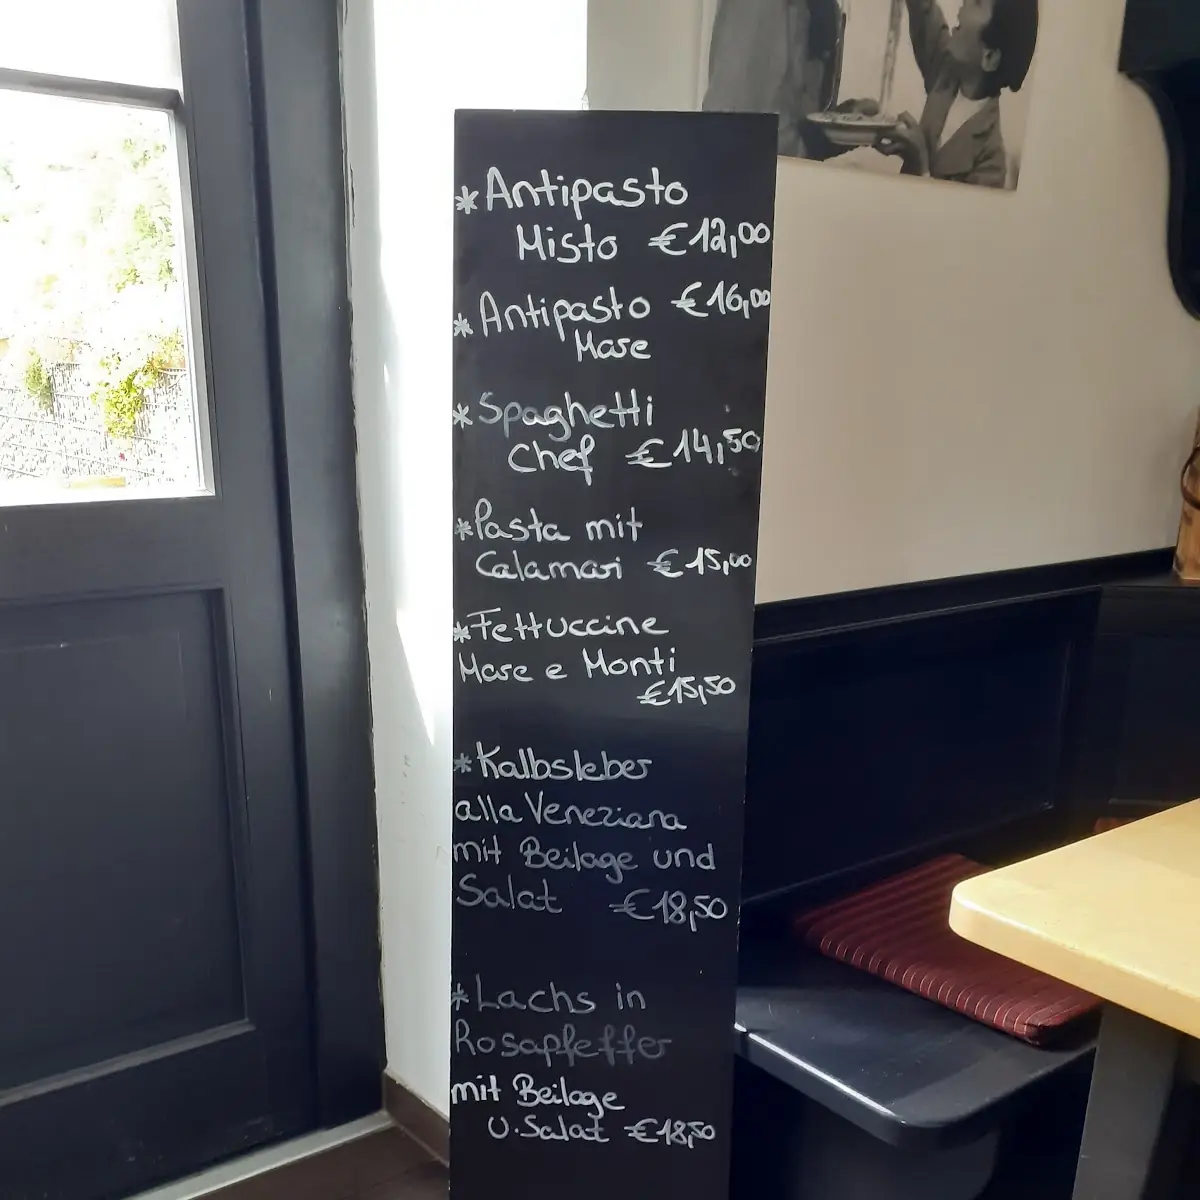 *Antipasto
Misto €12,00
*Antipasto €16,00
Mare
*Spaghetti
Chef €14,50
*Pasta mit
Calamari €15,00
*Fettuccine
Mare e Monti
€15,50
*Kalbsleber
alla Veneziana
mit Beilage und
Salat €18,50
*Lachs in
Rosapfeffer
mit Beilage
U. Salat €18,50